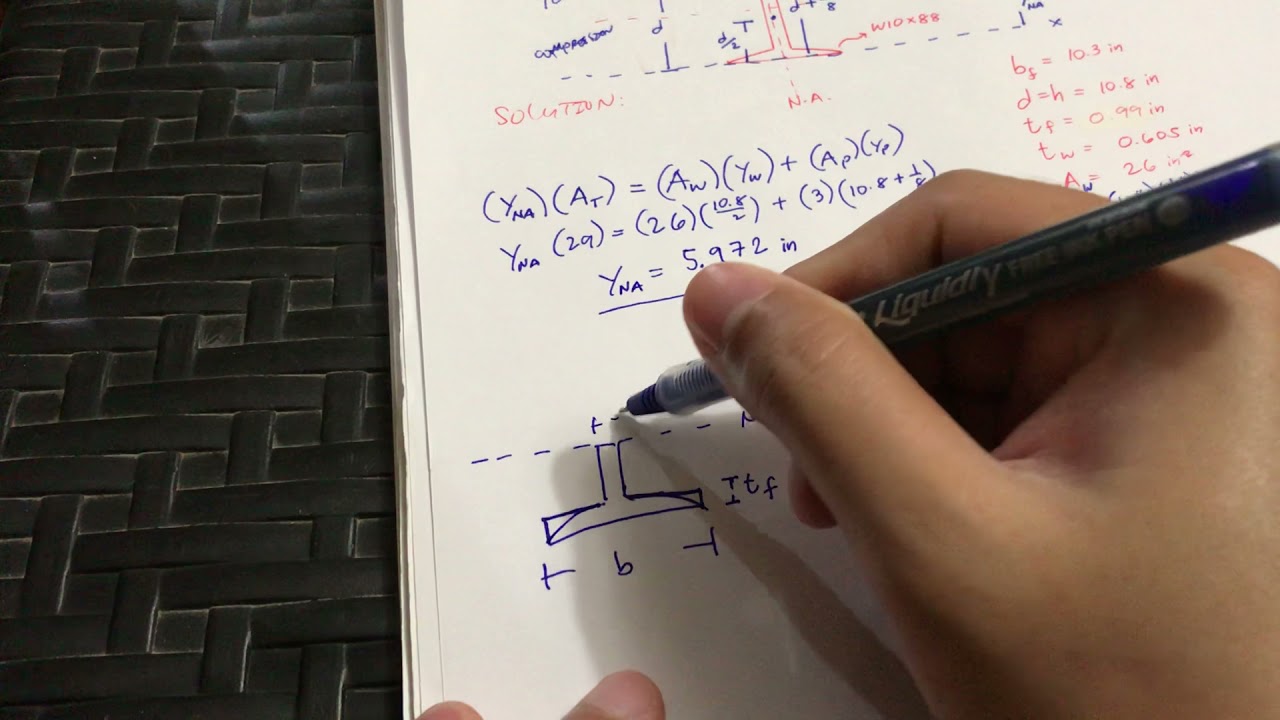 COMPRESSION
d
d/2
d +
8
W10×88
NA
x
N.A.
SOLUTION:
b_f = 10.3 in
d = h = 10.8 in
t_f = 0.99 in
t_w = 0.605 in
A_w = 26 in²
(Y_NA)(A_T) = (A_W)(Y_W) + (A_P)(Y_P)
Y_NA (29) = (26)(10.8/2) + (3)(10.8 + 1/8)
Y_NA = 5.972 in
t_f
b
Liquidly